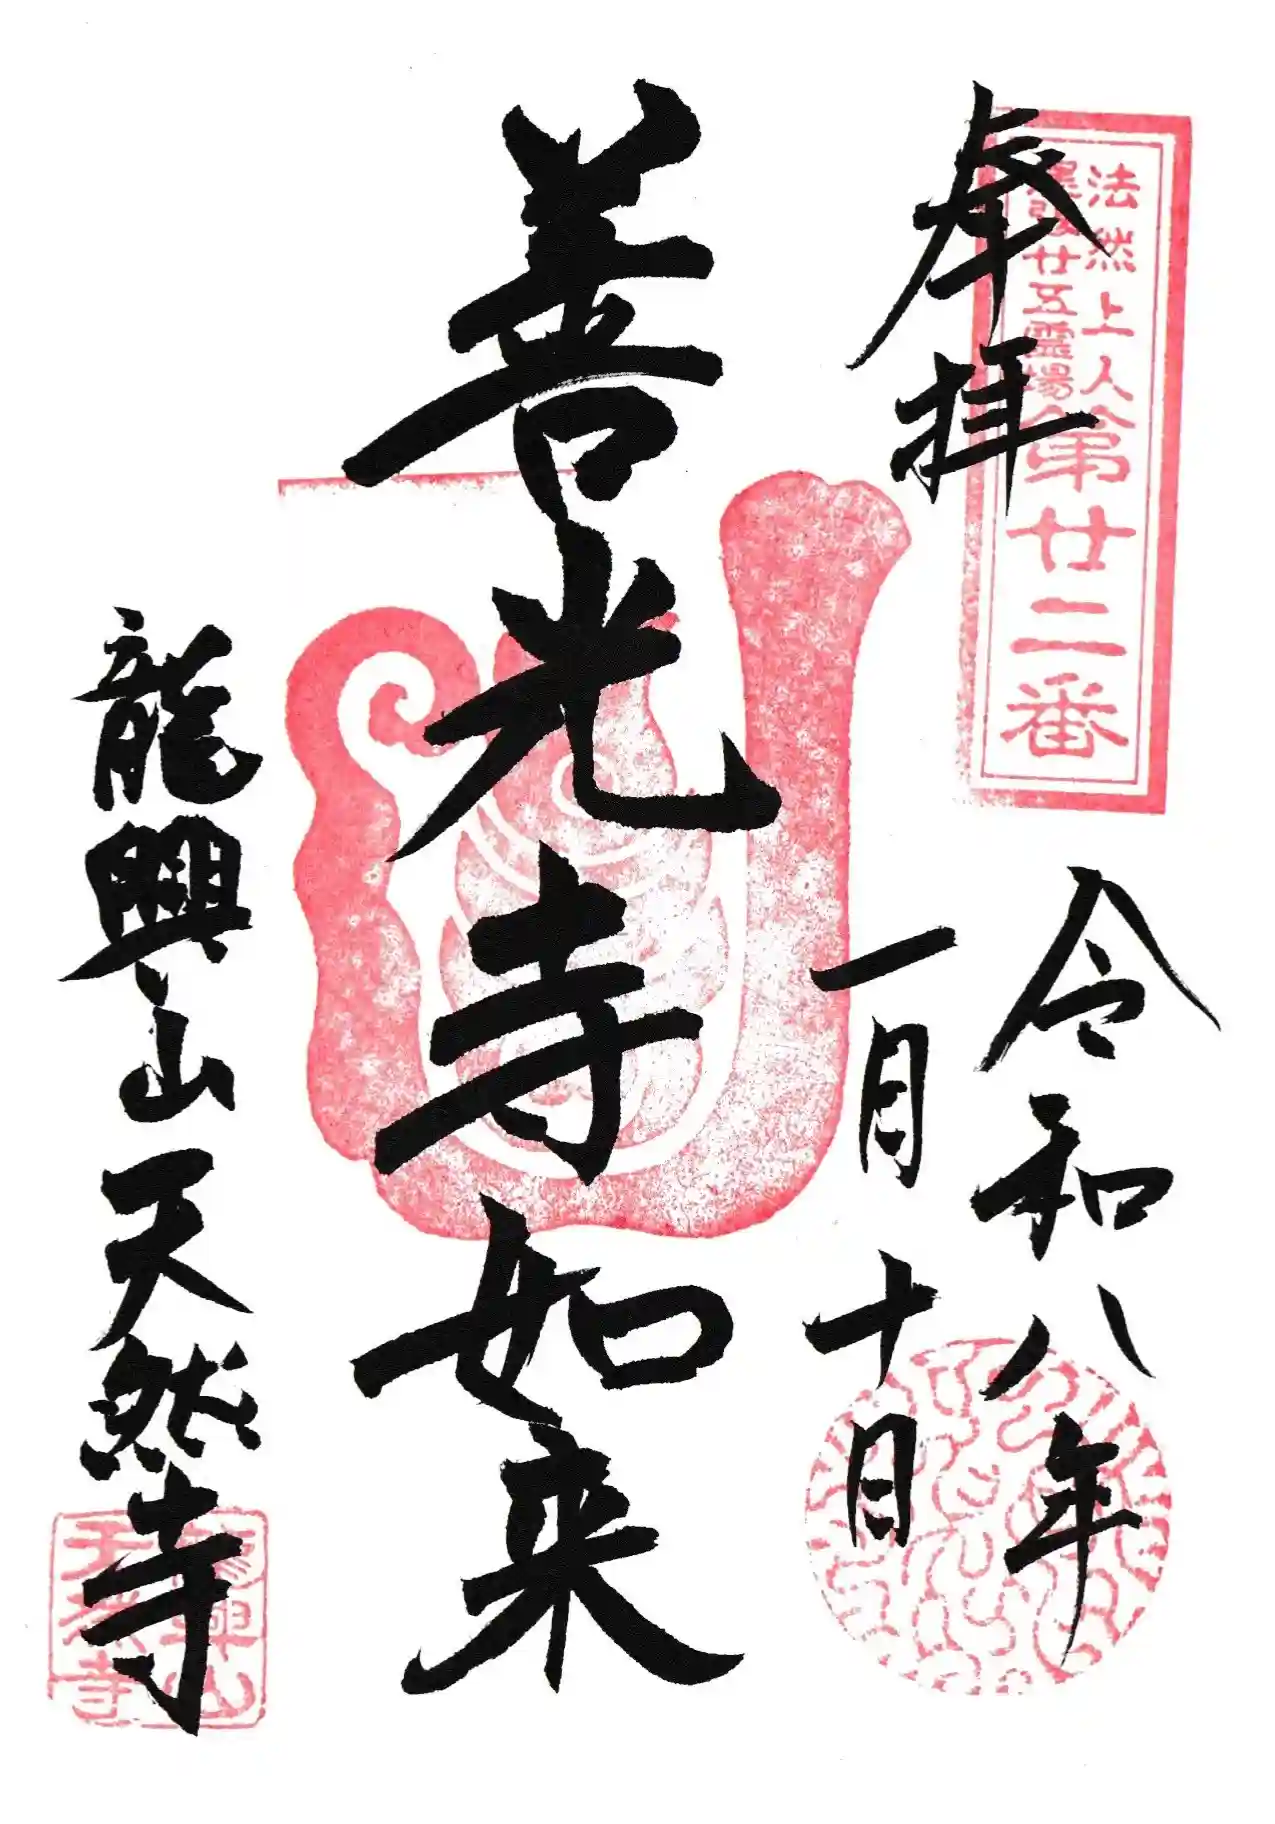 奉拝
法然上人
尾張廿五霊場
第廿二番
令和八年
一月十日
善光寺如来
龍興山天然寺
龍興山
天然寺